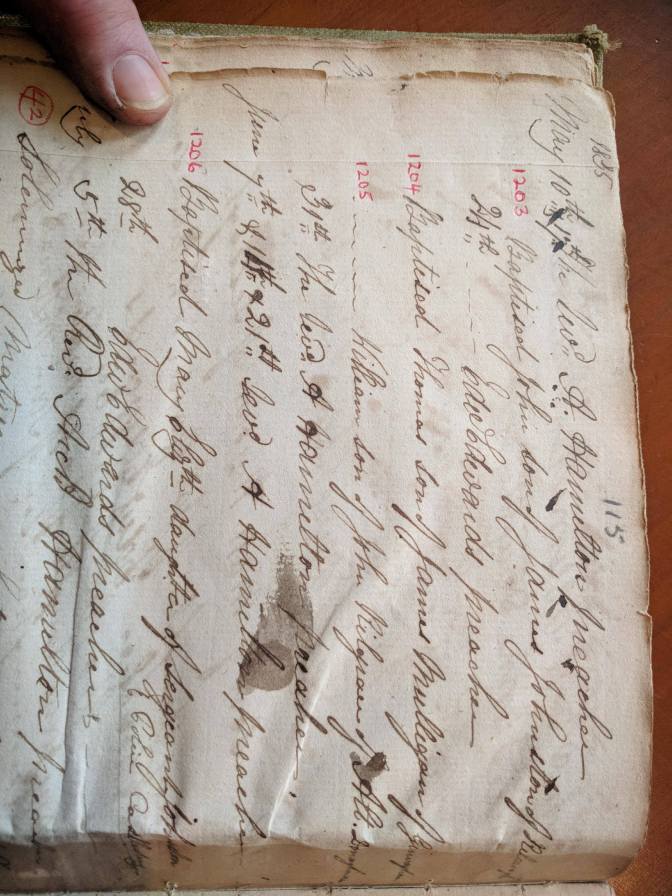 115
1835
May 10th 17th Revd. A. Hamilton preacher
1203 Baptised John son of James Johnston of
24th Edwd Edwards preacher
1204 Baptised Thomas son of James Mulligan of
1205 William son of John Kilgran of
31st The Revd. A Hamilton preacher.
June 7th & 14th & 21st Revd A Hamilton preacher
1206 Baptised Mary Elizth daughter of Sergeant Johnston
28th Edwards preacher
July 5th The Revd. Archd Hamilton
42 Solemnized